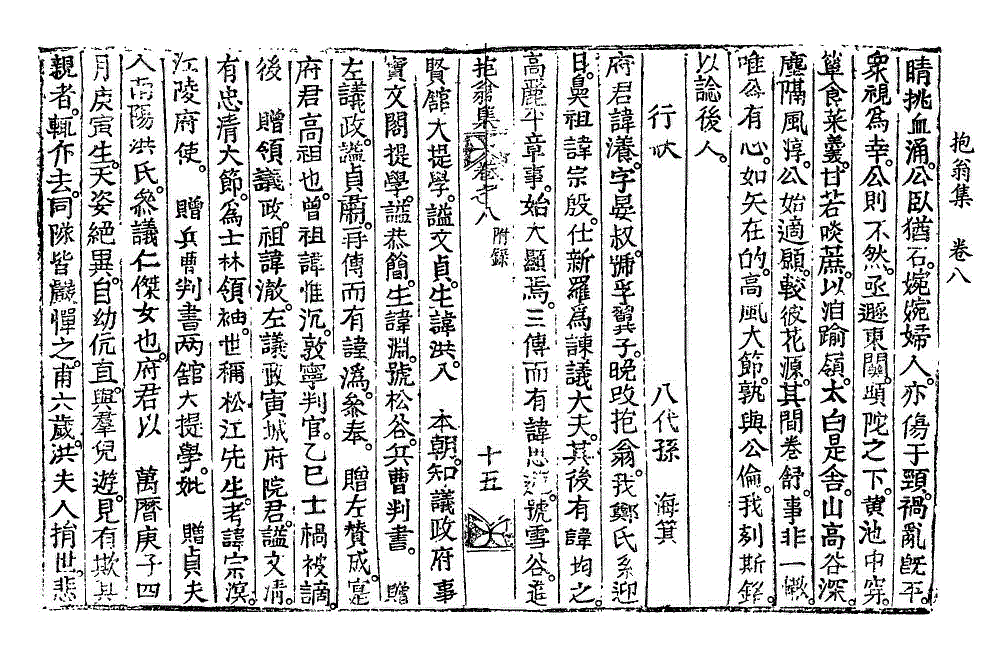 抱翁集 卷八
睛挑血涌。公臥猶石。婉婉婦人。亦傷于頸。禍亂旣平。
衆視爲幸。公則不然。亟遯東關。頭陀之下。黃池中穽。
簞食菜羹。甘若啖蔗。以泊踰嶺。太白是舍。山高谷深。
塵隔風淳。公始適願。較彼花源。其間卷舒。事非一轍。
唯爲有心。如矢在的。高風大節。孰與公倫。我刻斯銘。
以諗後人。
行狀 八代孫 海箕
府君諱瀁。字晏叔。號孚翼子。晚改抱翁。我鄭氏系迎
日。鼻祖諱宗殷。仕新羅爲諫議大夫。其後有諱均之
高麗平章事。始大顯焉。三傳而有諱思道。號雪谷。進
抱翁集 卷之八 附錄 十五
賢舘大提學。諡文貞。生諱洪。入 本朝。知議政府事
寶文閣提學。諡恭簡。生諱淵。號松谷。兵曹判書。 贈
左議政。諡貞肅。再傳而有諱潙。參奉。 贈左賛成。寔
府君高祖也。曾祖諱惟沉。敦寧判官。乙巳士禍被謫。
後 贈領議政。祖諱澈。左議政寅城府院君。諡文淸。
有忠淸大節。爲士林領袖。世稱松江先生。考諱宗溟。
江陵府使。 贈兵曹判書兩舘大提學。妣 贈貞夫
人南陽洪氏。參議仁傑女也。府君以 萬曆庚子四
月庚寅生。天姿絕異。自幼伉直。與羣兒遊。見有欺其
親者。輒作去。同隊皆嚴憚之。甫六歲。洪夫人捐世。悲